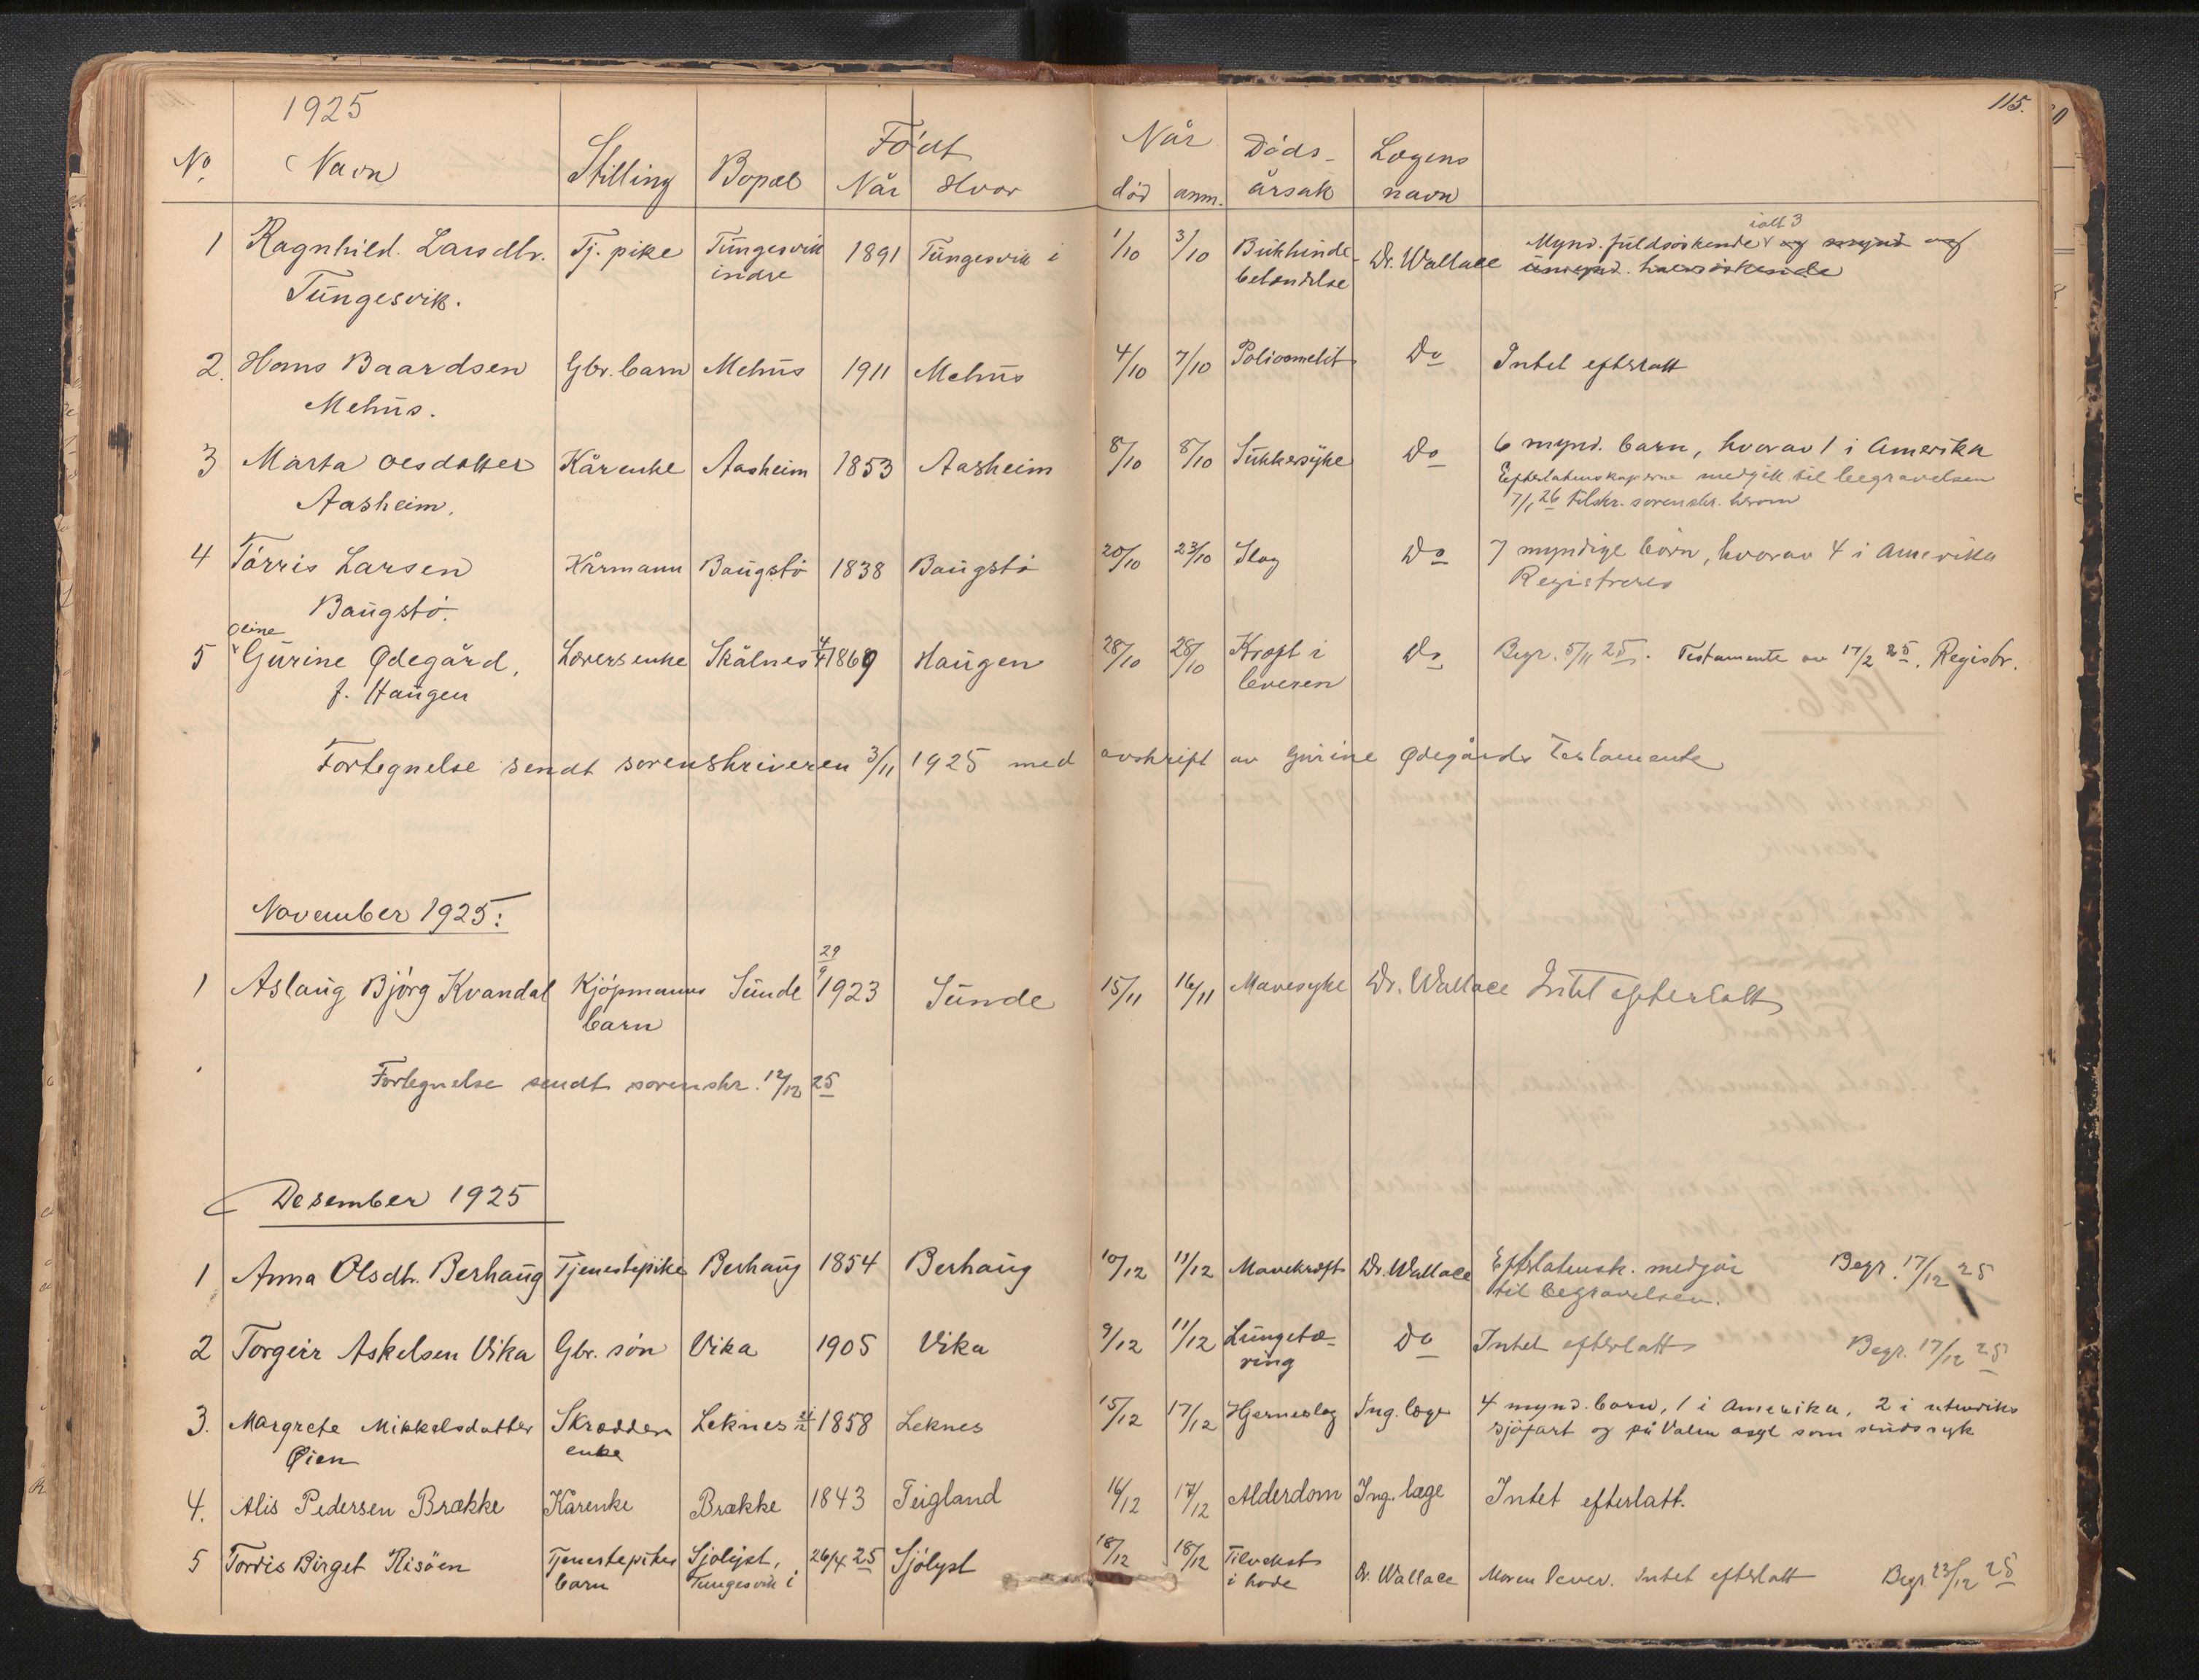 115.
1925
No. Navn Stilling Bopæl Født Når Hvor Når død anm. Døds-årsak Lægens navn
1 Ragnhild Larsdtr. Tj. pike Tungesvik 1891 Tungesvik i 1/10 3/10 Bukhinde- Dr. Wallace Mynd. fuldsøskende ialt 3 og mynd og
Tungesvik. indre betændelse umynd. halvsøskende
2. Hans Baardsen Gbr. barn Mehus 1911 Mehus 4/10 7/10 Poliomelit Do Intet efterlatt
Mehus.
3 Marta Olsdotter Kårenke Aasheim 1853 Aasheim 8/10 8/10 Sukkersyke Do 6 mynd. barn, hvorav 1 i Amerika
Aasheim. Efterlatenskaperne medgikk til begravelsen
7/1 26 tilskr. sorenskr. herom
4 Tørris Larsen Kårmann Baugstø 1838 Baugstø 20/10 23/10 Slag Do 7 myndige børn, hvorav 4 i Amerika
Baugstø. Registreres
Oline
5 Gurine Ødegård, Lærerenke Skålnes 1869 Haugen 28/10 28/10 Kræft i Do Begr. 5/11 25. Testamente av 17/2 25. Registr.
f. Haugen leveren
Fortegnelse sendt sorenskriveren 3/11 1925 med avskrift av Gurine Ødegårds testamente
November 1925:
1 Aslaug Bjørg Kvandal Kjøpmanns Sunde 29/9 1923 Sunde 15/11 16/11 Mavesyke Dr. Wallace Intet efterlatt
barn
Fortegnelse sendt sorenskr. 12/12 25
Desember 1925
1 Anna Olsdtr. Berhaug Tjenestepike Berhaug 1854 Berhaug 10/12 11/12 Mavekræft Dr. Wallace Efterlatensk. medgår Begr. 17/12 25
til begravelsen.
2 Torgeir Askelsen Vika Gbr. søn Vika 1905 Vika 9/12 11/12 Lungetæ- Do Intet efterlatt Begr. 17/12 25
ring
3. Margrete Mikkelsdatter Skrædder Leknes 1858 Leknes 15/12 17/12 Hjerneslag Ing. læge 4 mynd. barn, 1 i Amerika, 2 i utenriks
Øien enke sjøfart og på Valen asyl som sindssyk
4. Alis Pedersen Brække Kårenke Brække 1843 Teigland 16/12 17/12 Alderdom Ing. læge Intet efterlatt.
5 Tordis Birget Risøen Tjenestepikes Sjølyst, 26/4 25 Sjølyst 18/12 18/12 Tilvekst Dr. Wallace Moren lever. Intet efterlatt Begr. 23/12 25
barn Tungesvik i i hode